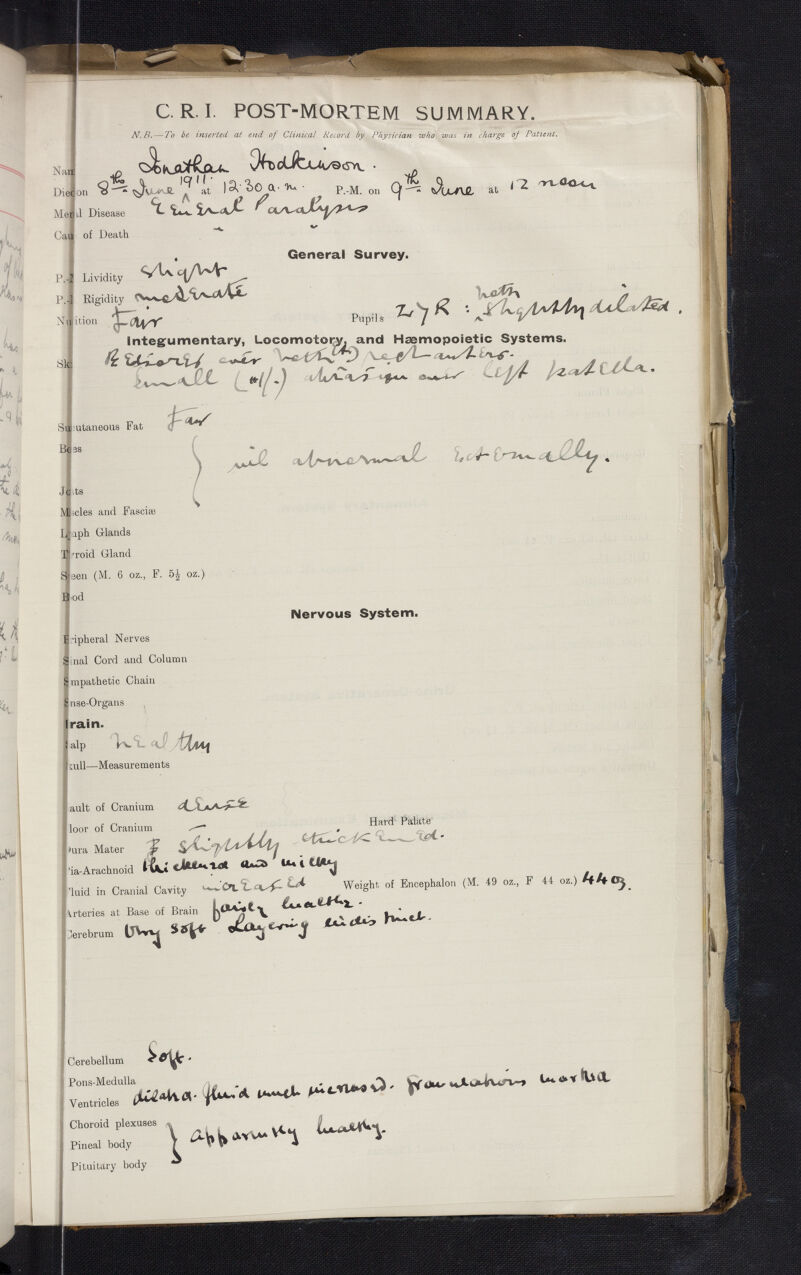 C. R. I. POST-MORTEM SUMMARY.
N.B.—To be inserted at end of Clinical Record by Physician who was in charge of Patient.
Nam Jonathan Hodkinson.
Died on 8th June 1911 at 12.30 a.m. P.-M. on 9th June at 12 noon
Mental Disease General Paralysis
Cau of Death " "
General Survey.
P.-M. Lividity slight
P.-M. Rigidity moderate
Nutrition Fair Pupils L 7 R : both slightly dilated.
Integumentary, Locomotory, and Hæmopoietic Systems.
Sk Bedsores over both trochanters.
Small (old) abrasion over left patella.
Subcutaneous Fat Fair
Bones
nil abnormal externally.
Joints
Muscles and Fasciæ
Lymph Glands
Thyroid Gland
Spleen (M. 6 oz., F. 5½ oz.)
Blood
Nervous System.
Peripheral Nerves
Spinal Cord and Column
Sympathetic Chain
Sense-Organs
Brain.
Scalp healthy
Skull—Measurements
Vault of Cranium dense
Floor of Cranium — Hard Palate
Dura Mater slightly thickened.
Pia-Arachnoid thickened and milky
Fluid in Cranial Cavity increased Weight of Encephalon (M. 49 oz., F 44 oz.) 44 oz.
Arteries at Base of Brain fairly healthy.
Cerebrum Very soft Layering indistinct.
Cerebellum Soft.
Pons-Medulla
Ventricles dilated. fluid much increased. granulations marked
Choroid plexuses
Pineal body apparently healthy.
Pituitary body